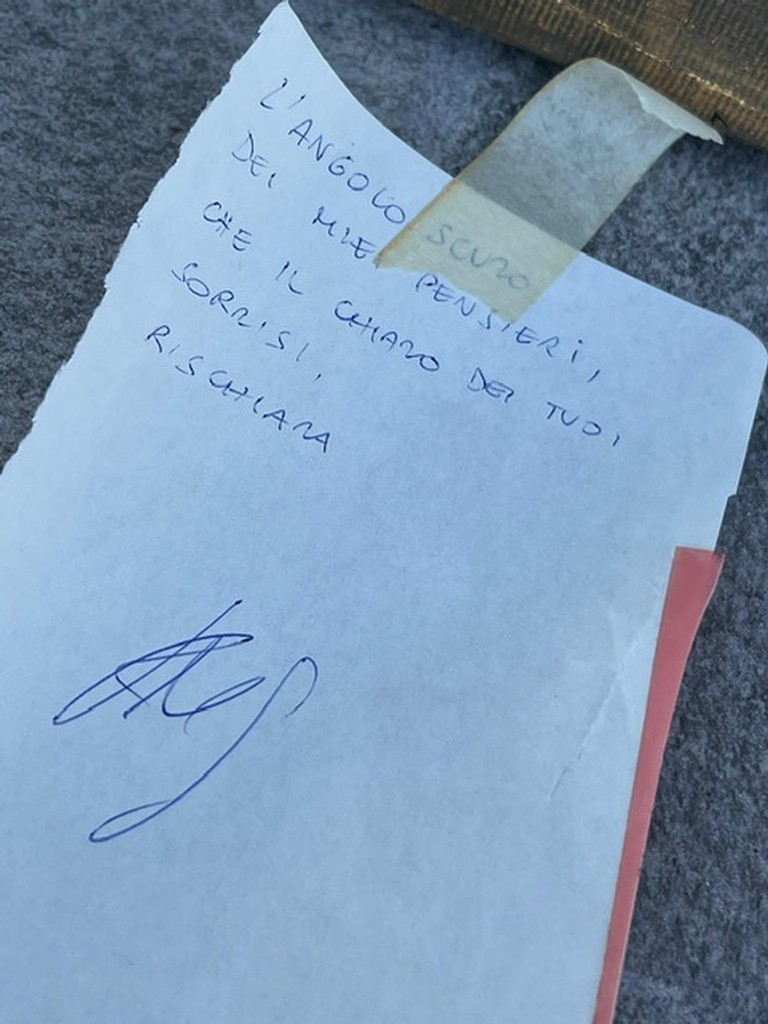 L'ANGOLO SCURO
DEI MIEI PENSIERI,
CHE IL CHIARO DEI TUOI
SORRISI,
RISCHIARA